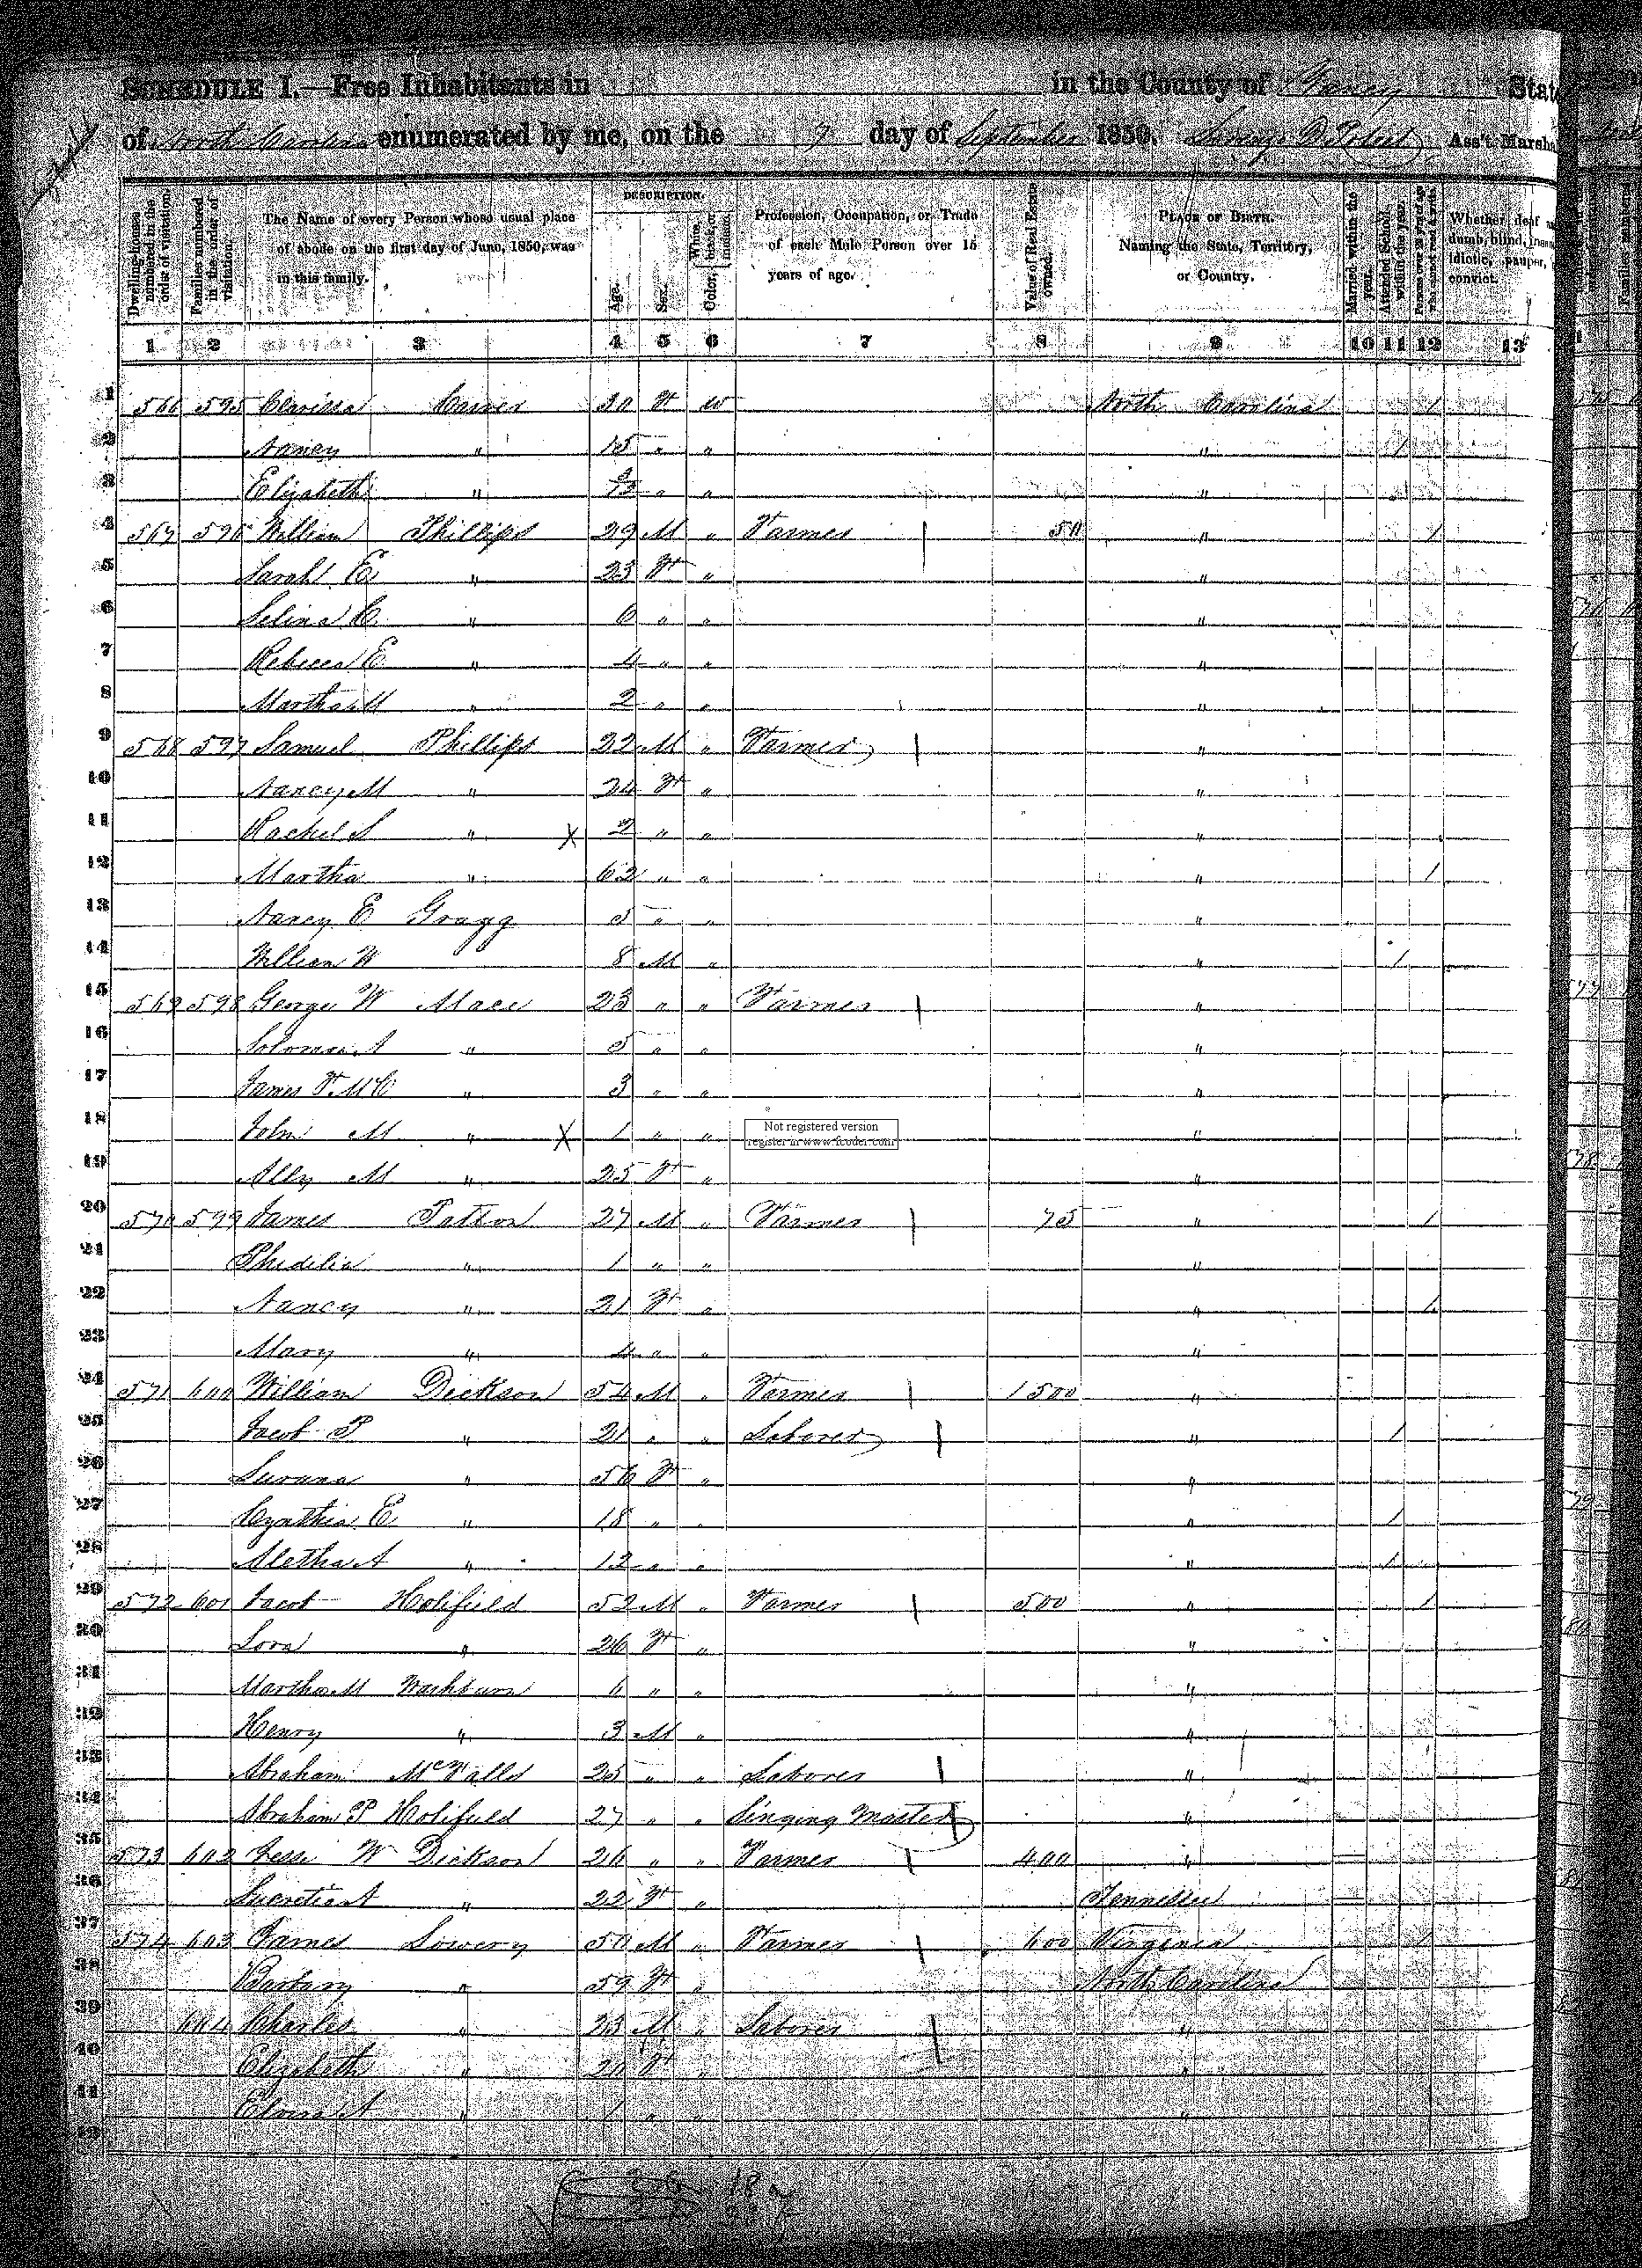 SCHEDULE I.—Free Inhabitants in in the County of Yancey State
of North Carolina enumerated by me, on the 7 day of September 1850. Ass't. Marshal
DESCRIPTION.
Dwelling-houses numbered in the order of visitation.
Families numbered in the order of visitation.
The Name of every Person whose usual place of abode on the first day of June, 1850, was in this family.
Age.
Sex.
Color, White, black, or mulatto.
Profession, Occupation, or Trade of each Male Person over 15 years of age.
Value of Real Estate owned.
PLACE OF BIRTH. Naming the State, Territory, or Country.
Married within the year.
Attended School within the year.
Persons over 20 y'rs of age who cannot read & write.
Whether deaf and dumb, blind, insane, idiotic, pauper, or convict.
1 2 3 4 5 6 7 8 9 10 11 12 13
1 566 595 Clarissa 30 F W North Carolina 1
2 Nancy " 15 " " " 1
3 Elizabeth " " " "
4 567 596 William Phillips 29 M " Farmer 50 " 1
5 Sarah E " 23 F " "
6 Selina C " 6 " " "
7 Rebecca E " 4 " " "
8 Martha M " 2 " " "
9 568 597 Samuel Phillips 22 M " Farmer "
10 Nancy M " 24 F " "
11 Rachel S " X 2 " " "
12 Martha " 62 " " " 1
13 Nancy E Gragg 5 " " "
14 William W 8 M " " 1
15 569 598 George W Mace 23 " " Farmer "
16 Solomon A " 5 " " "
17 James F. M C " 3 " " "
18 John M " X 1 " " "
Not registered version
register in www.fcoder.com
19 Ally M " 25 F " "
20 570 599 James Patton 27 M " Farmer 75 " 1
21 Phidelia " 1 " " "
22 Nancy " 21 F " " 1
23 Mary " 4 " " "
24 571 600 William Dickson 54 M " Farmer 1500 "
25 Jacob P " 21 " " Laborer " 1
26 Susana " 56 F " "
27 Cynthia E " 18 " " " 1
28 Aletha A " 12 " " " 1
29 572 601 Jacob Holifield 52 M " Farmer 500 " 1
30 Lova " 26 F " "
31 Martha M Washburn 6 " " "
32 Henry " 3 M " "
33 Abraham McFalls 25 " " Laborer "
34 Abraham P Holifield 27 " " Singing Master "
35 573 602 Jesse W Dickson 26 " " Farmer 400 "
36 Lucretia A " 22 F " Tennessee
37 574 603 James Lowery 50 M " Farmer 600 Virginia 1
38 Barbary " 59 F " North Carolina
39 604 Charles " 23 M " Laborer "
40 Elizabeth " 20 F "
41 " 1 " "
42